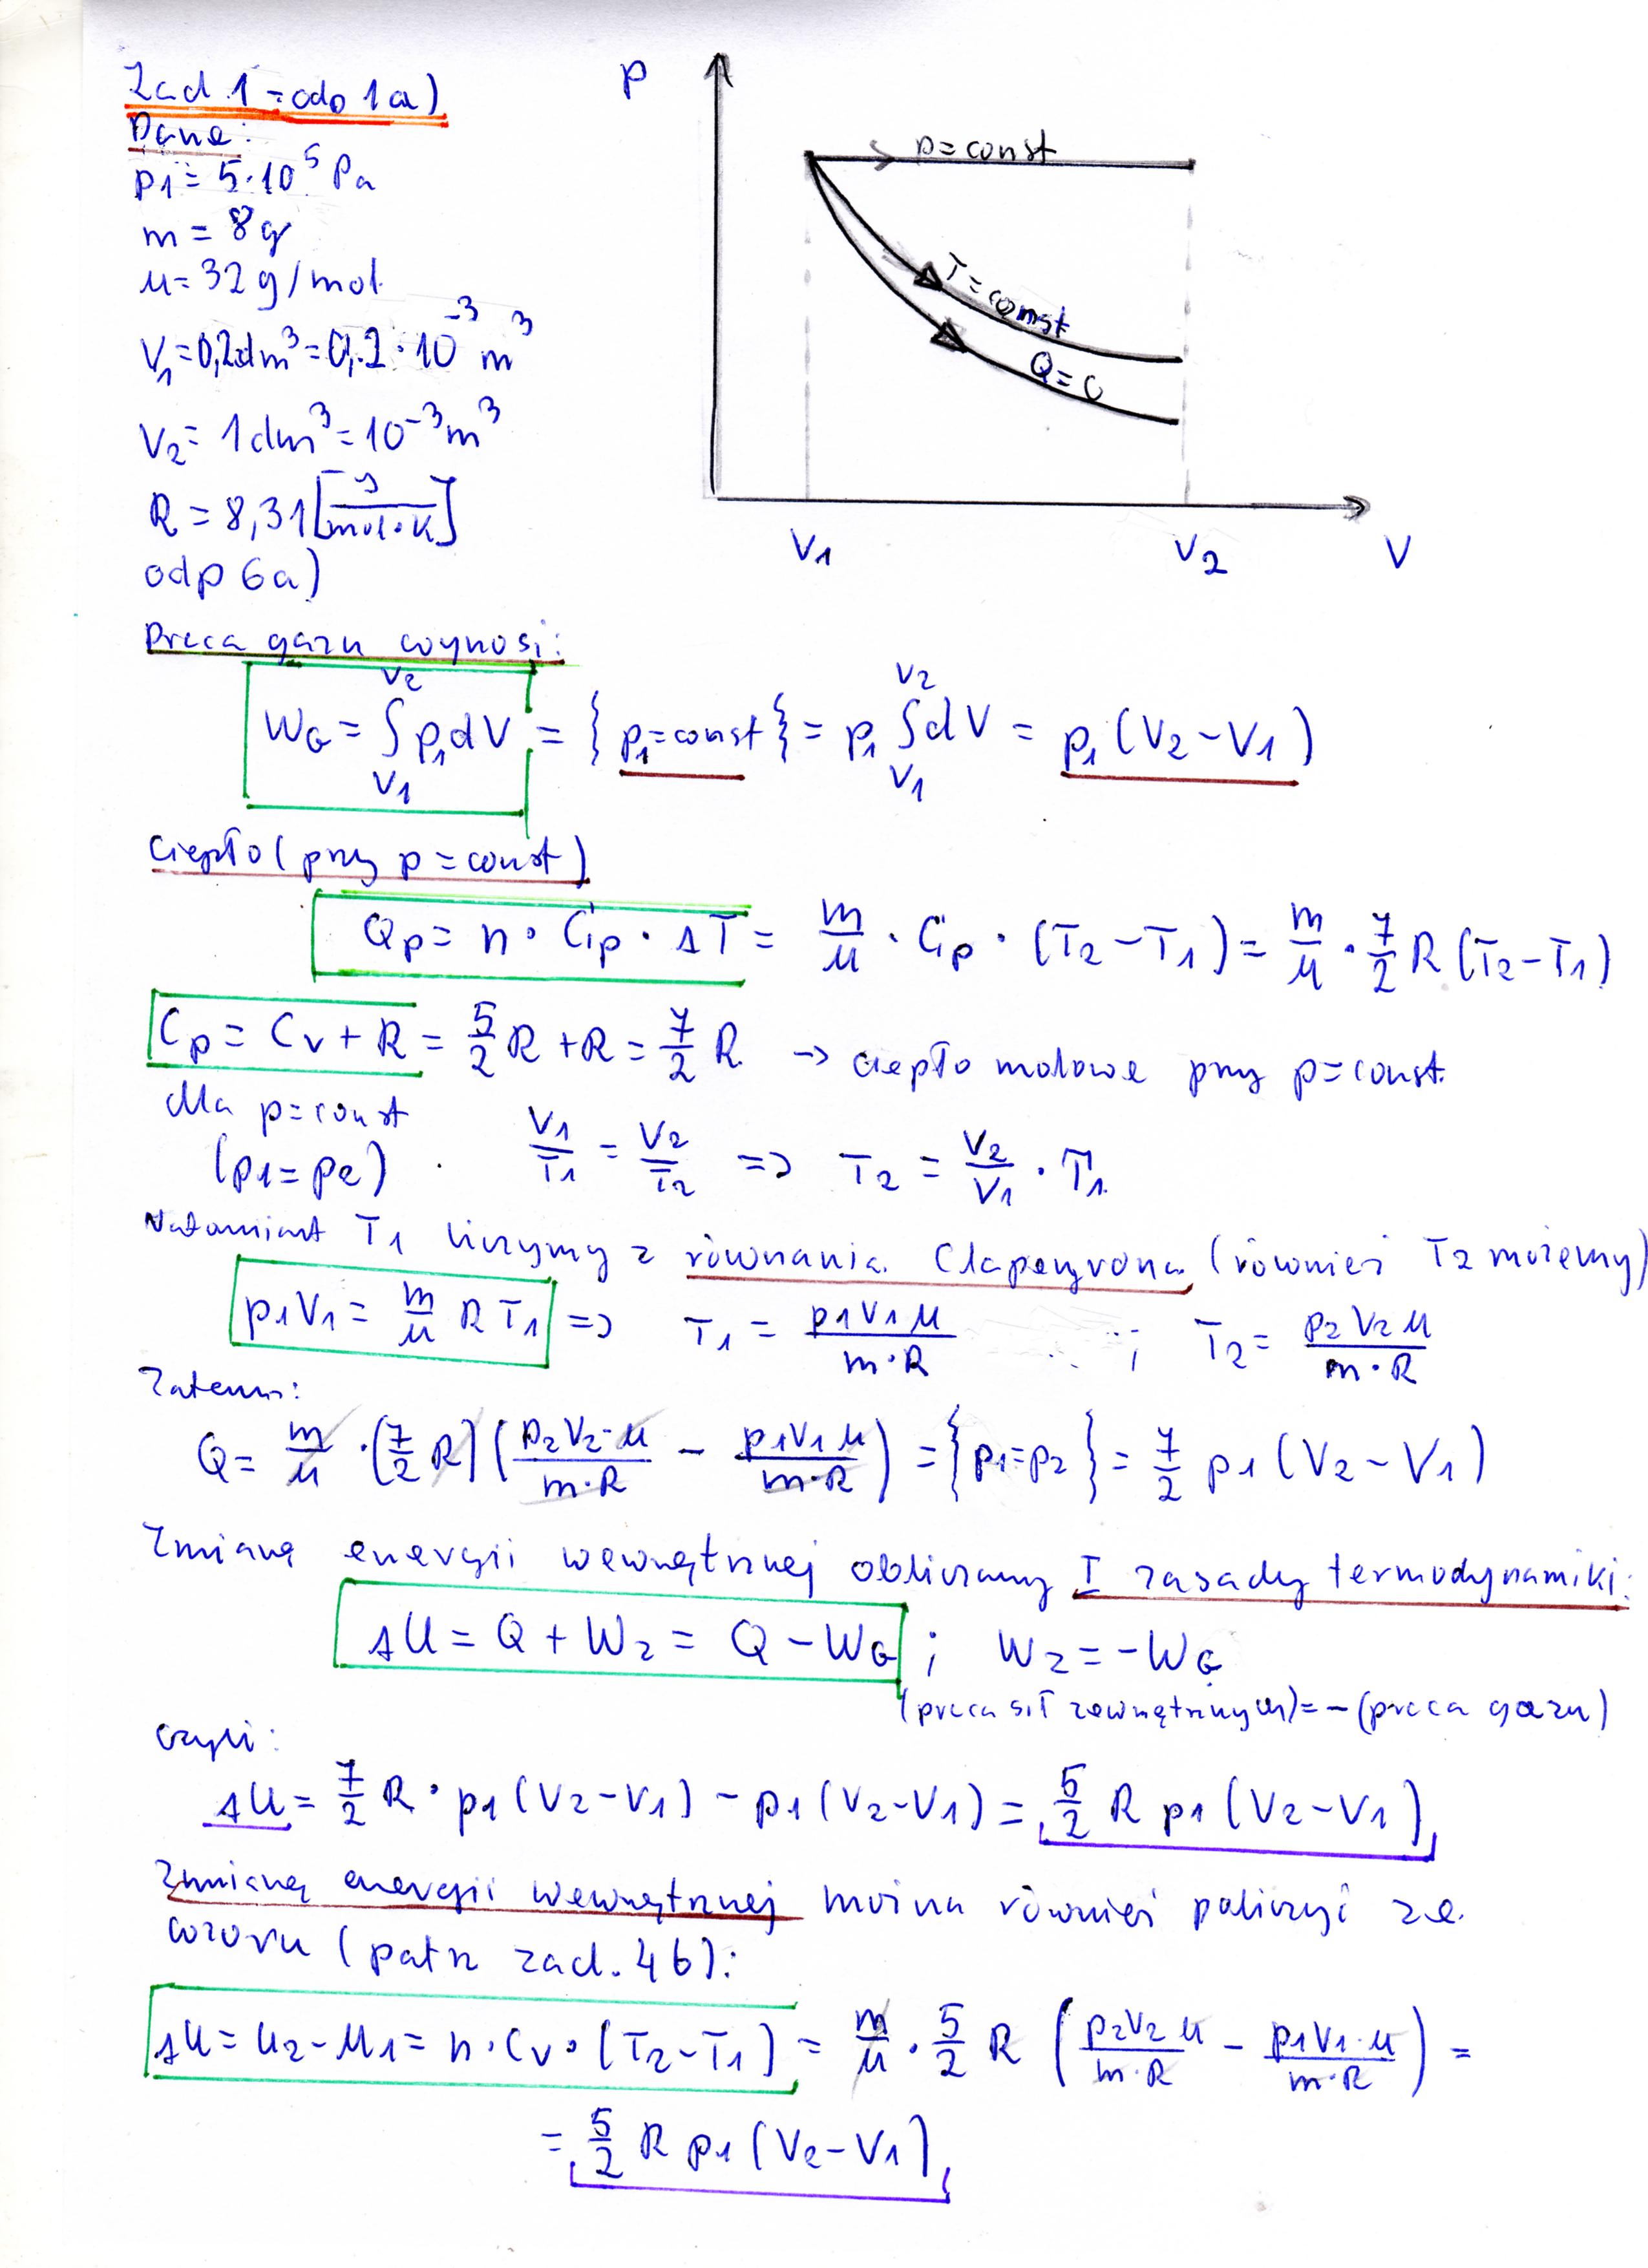 Zad 1 - odp 1a)
Dane:
p1 = 5·10^5 Pa
m = 8g
μ = 32 g/mol
V1 = 0,2dm^3 = 0,2·10^-3 m^3
V2 = 1dm^3 = 10^-3 m^3
R = 8,31 [J/mol·K]
odp 6a)
p
p = const
T = const
Q = 0
V1
V2
V
Praca gazu wynosi:
WG = ∫_V1^V2 p1dV = {p1 = const} = p1 ∫_V1^V2 dV = p1 (V2 - V1)
Ciepło (przy p = const)
Qp = n · Cp · ΔT = m/μ · Cp · (T2 - T1) = m/μ · 7/2 R (T2 - T1)
Cp = Cv + R = 5/2 R + R = 7/2 R → ciepło molowe przy p = const.
dla p = const
(p1 = p2)
V1/T1 = V2/T2 => T2 = V2/V1 · T1
Natomiast T1 liczymy z równania Clapeyrona (również T2 możemy)
p1V1 = m/μ R T1 => T1 = p1V1μ/m·R ; T2 = p2V2μ/m·R
Zatem:
Q = m/μ · (7/2 R) (p2V2·μ/m·R - p1V1μ/m·R) = {p1 = p2} = 7/2 p1 (V2 - V1)
Zmianę energii wewnętrznej obliczamy I zasady termodynamiki:
ΔU = Q + Wz = Q - WG ; Wz = -WG
(praca sił zewnętrznych) = - (praca gazu)
czyli:
ΔU = 7/2 R · p1 (V2 - V1) - p1 (V2 - V1) = 5/2 R p1 (V2 - V1)
Zmianę energii wewnętrznej można również policzyć ze
wzoru (patrz zad. 4b):
ΔU = U2 - U1 = n · Cv · (T2 - T1) = m/μ · 5/2 R (p2V2μ/m·R - p1V1·μ/m·R) =
= 5/2 R p1 (V2 - V1)